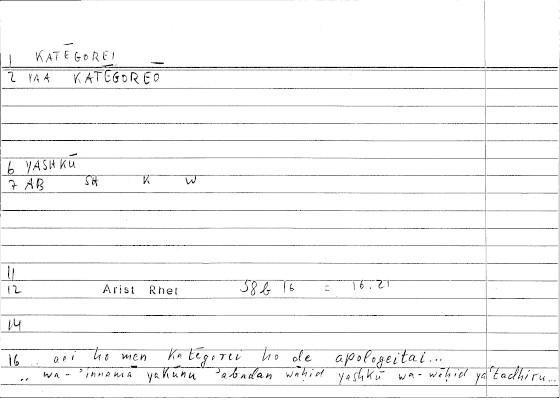 1 KATĒGOREI
2 VAA KATĒGOREŌ
6 YASHKŪ
7 AB SH K W
11
12 Arist Rhet 58b 16 = 16.21
14
16 .. aei ho men katēgorei ho de apologeitai...
.. wa-'innamā yakūnu 'abadan wāḥid yashkū wa-wāḥid ya'tadhiru...